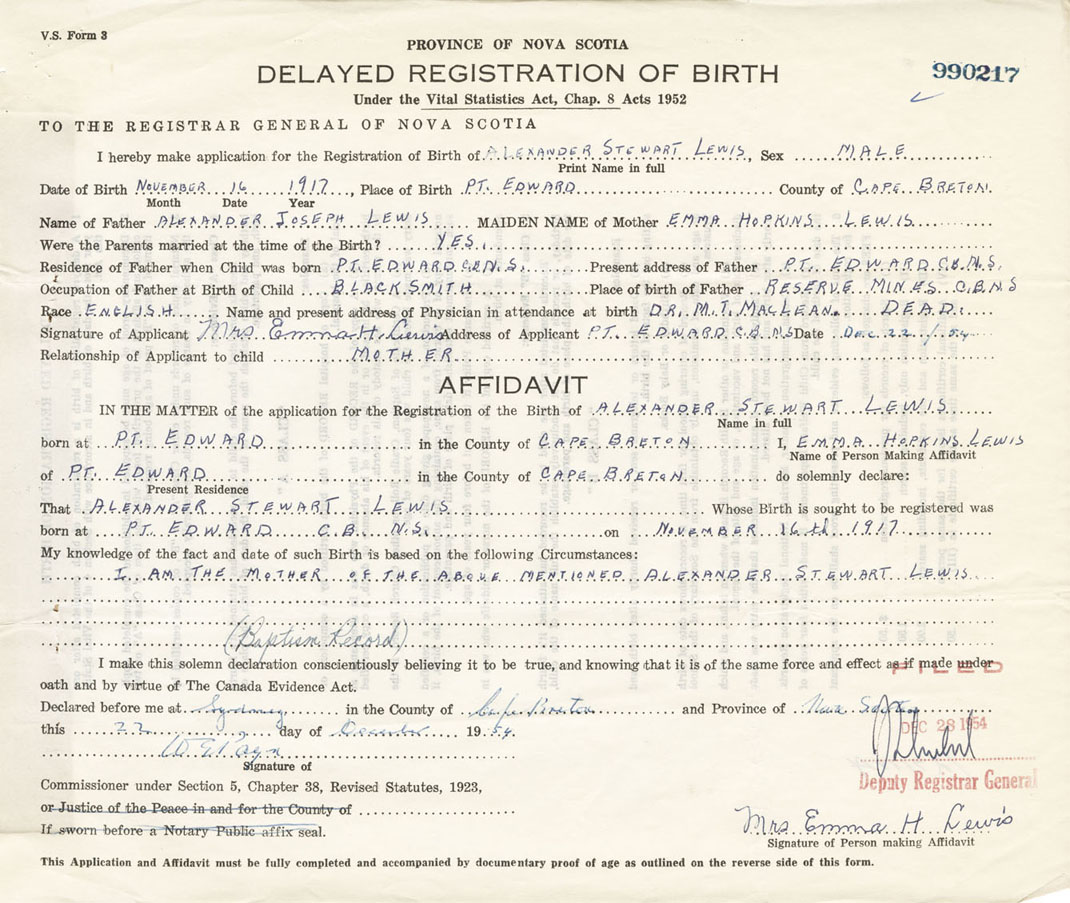 V.S. Form 3
PROVINCE OF NOVA SCOTIA
DELAYED REGISTRATION OF BIRTH
990217
Under the Vital Statistics Act, Chap. 8 Acts 1952
TO THE REGISTRAR GENERAL OF NOVA SCOTIA
I hereby make application for the Registration of Birth of ALEXANDER STEWART LEWIS, Sex MALE
Print Name in full
Date of Birth NOVEMBER 16 1917, Place of Birth PT. EDWARD County of CAPE BRETON.
Month Date Year
Name of Father ALEXANDER JOSEPH LEWIS MAIDEN NAME of Mother EMMA HOPKINS LEWIS
Were the Parents married at the time of the Birth? YES.
Residence of Father when Child was born PT. EDWARD C.B. N.S. Present address of Father PT. EDWARD C.B. N.S.
Occupation of Father at Birth of Child BLACKSMITH Place of birth of Father RESERVE MINES C.B. N S
Race ENGLISH Name and present address of Physician in attendance at birth DR. M.T. MACLEAN. DEAD.
Signature of Applicant Mrs. Emma H. Lewis Address of Applicant PT. EDWARD C.B. N S Date Dec. 22 / 54
Relationship of Applicant to child MOTHER
AFFIDAVIT
IN THE MATTER of the application for the Registration of the Birth of ALEXANDER STEWART LEWIS
Name in full
born at PT. EDWARD in the County of CAPE BRETON I, EMMA HOPKINS LEWIS
Name of Person Making Affidavit
of PT. EDWARD in the County of CAPE BRETON do solemnly declare:
Present Residence
That ALEXANDER STEWART LEWIS Whose Birth is sought to be registered was
born at PT. EDWARD C.B. N.S. on NOVEMBER 16th 1917
My knowledge of the fact and date of such Birth is based on the following Circumstances:
I AM THE MOTHER OF THE ABOVE MENTIONED ALEXANDER STEWART LEWIS
(Baptism Record)
I make this solemn declaration conscientiously believing it to be true, and knowing that it is of the same force and effect as if made under
oath and by virtue of The Canada Evidence Act.
FILED
Declared before me at Sydney in the County of Cape Breton and Province of Nova Scotia
this 22 day of December 19 54
DEC 28 1954
Signature of
Deputy Registrar General
Commissioner under Section 5, Chapter 38, Revised Statutes, 1923,
or Justice of the Peace in and for the County of
If sworn before a Notary Public affix seal.
Mrs. Emma H. Lewis
Signature of Person making Affidavit
This Application and Affidavit must be fully completed and accompanied by documentary proof of age as outlined on the reverse side of this form.